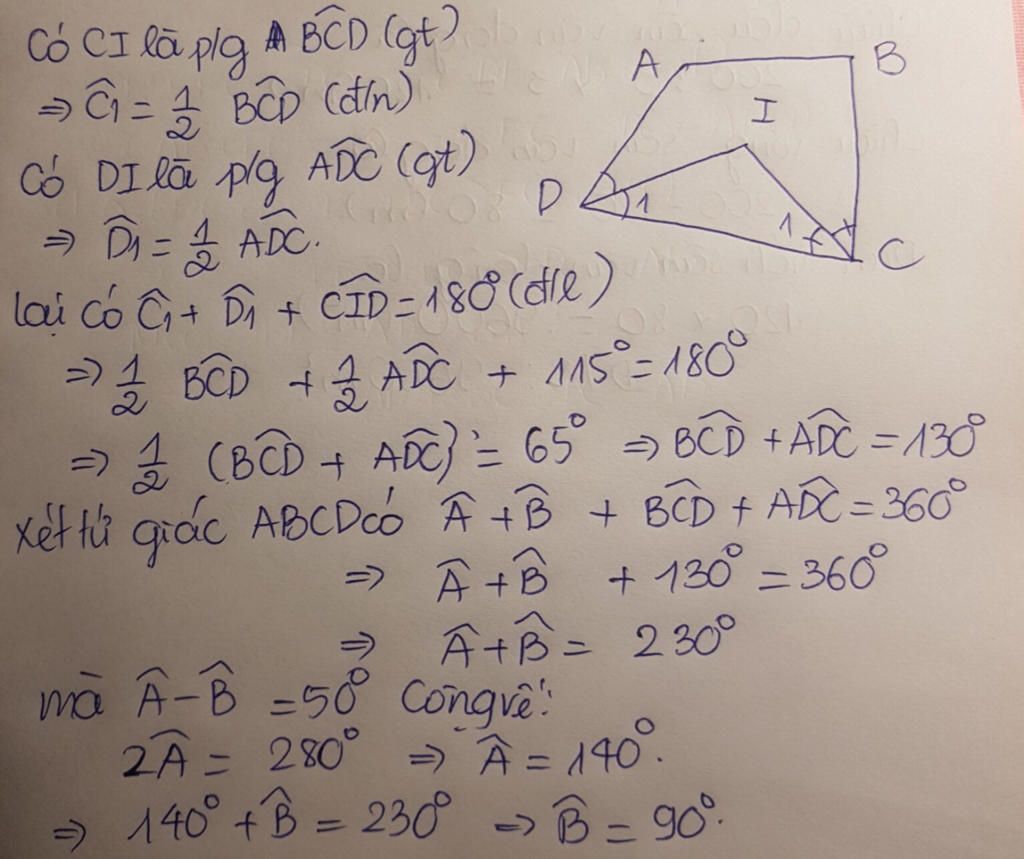 Có CI là p/g BĈD (gt)
⇒ Ĉ1 = 1/2 BĈD (đ/n)
Có DI là p/g AD̂C (gt)
⇒ D̂1 = 1/2 AD̂C.
lại có Ĉ1 + D̂1 + CÎD = 180° (đ/l)
⇒ 1/2 BĈD + 1/2 AD̂C + 115° = 180°
⇒ 1/2 (BĈD + AD̂C) = 65° ⇒ BĈD + AD̂C = 130°
Xét tứ giác ABCD có Â + B̂ + BĈD + AD̂C = 360°
⇒ Â + B̂ + 130° = 360°
⇒ Â + B̂ = 230°
mà Â - B̂ = 50° Cộng vế:
2Â = 280° ⇒ Â = 140°.
⇒ 140° + B̂ = 230° ⇒ B̂ = 90°.
A B
I
D 1
1 C